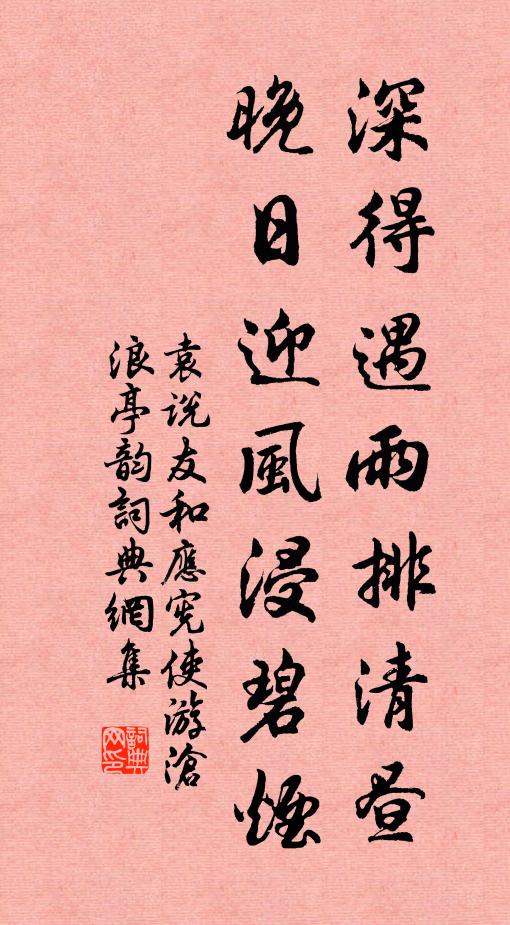 深得遇雨排清昼
晚日迎風浸碧煙
袁说友和應宪使游滄
浪亭韵詞典網集
詞典网印